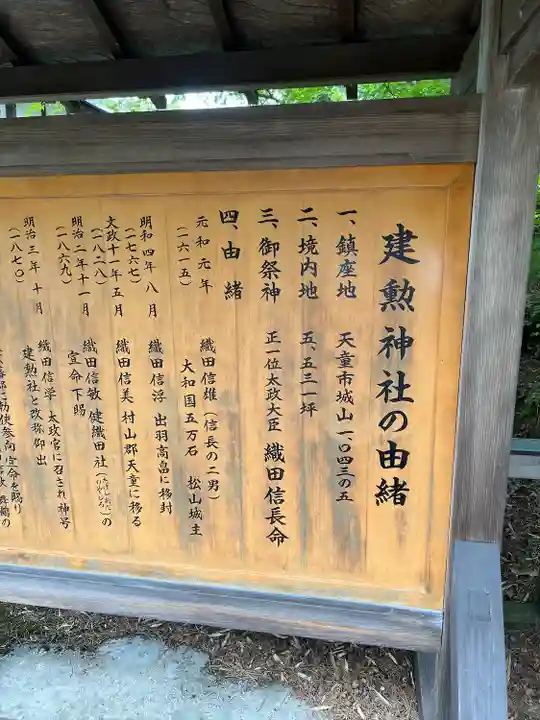 建勲神社の由緒
一、鎮座地　天童市城山一、〇四三の五
二、境内地　五、五三一坪
三、御祭神　正一位太政大臣　織田信長命
四、由緒
元和元年　織田信雄（信長の二男）
（一六一五）　大和国五万石　松山城主
明和四年八月　織田信浮　出羽高畠に移封
（一七六七）
文政十一年五月　織田信美　村山郡天童に移る
（一八二八）
明治二年十一月　織田信敏　健織田社（たけしおりたのやしろ）の
（一八六九）　宣命下賜
明治三年十月　織田信学　太政官に召され神号
（一八七〇）　建勲社と改称仰出
勅使参向　宣命を賜り